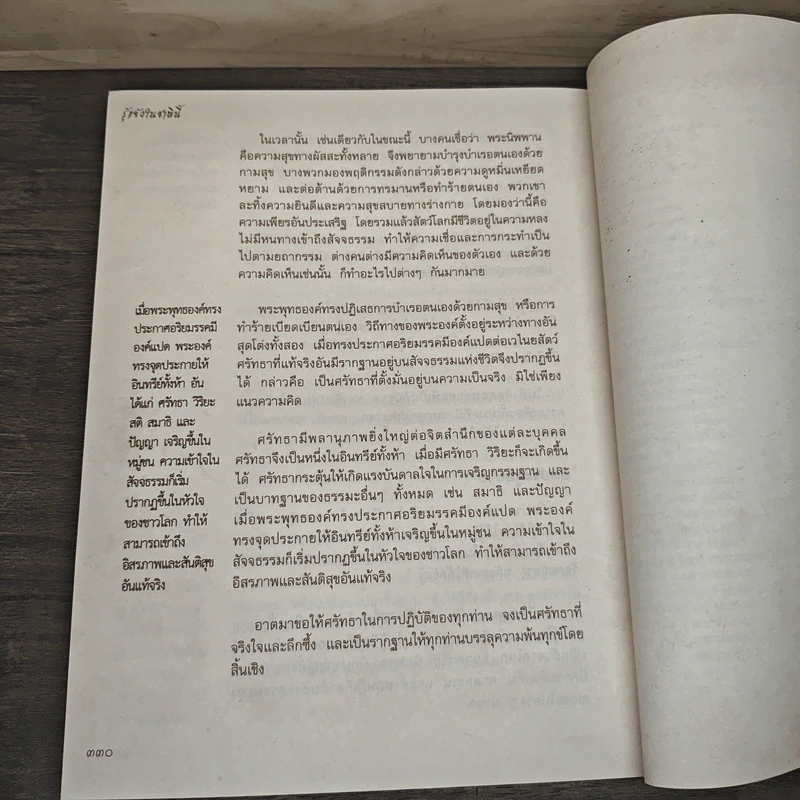 รู้แจ้งในชาตินี้
ในเวลานั้น เช่นเดียวกับในขณะนี้ บางคนเชื่อว่า พระนิพพาน
คือความสุขทางผัสสะทั้งหลาย จึงพยายามบำรุงบำเรอตนเองด้วย
กามสุข บางพวกมองพฤติกรรมดังกล่าวด้วยความดูหมิ่นเหยียด
หยาม และต่อต้านด้วยการทรมานหรือทำร้ายตนเอง พวกเขา
ละทิ้งความยินดีและความสุขสบายทางร่างกาย โดยมองว่านี้คือ
ความเพียรอันประเสริฐ โดยรวมแล้วสัตว์โลกมีชีวิตอยู่ในความหลง
ไม่มีหนทางเข้าถึงสัจจธรรม ทำให้ความเชื่อและการกระทำเป็น
ไปตามยถากรรม ต่างคนต่างมีความคิดเห็นของตัวเอง และด้วย
ความคิดเห็นเช่นนั้น ก็ทำอะไรไปต่างๆ กันมากมาย
เมื่อพระพุทธองค์ทรง
ประกาศอริยมรรคมี
องค์แปด พระองค์
ทรงจุดประกายให้
อินทรีย์ทั้งห้า อัน
ได้แก่ ศรัทธา วิริยะ
สติ สมาธิ และ
ปัญญา เจริญขึ้นใน
หมู่ชน ความเข้าใจใน
สัจจธรรมก็เริ่ม
ปรากฏขึ้นในหัวใจ
ของชาวโลก ทำให้
สามารถเข้าถึง
อิสรภาพและสันติสุข
อันแท้จริง
พระพุทธองค์ทรงปฏิเสธการบำเรอตนเองด้วยกามสุข หรือการ
ทำร้ายเบียดเบียนตนเอง วิถีทางของพระองค์ตั้งอยู่ระหว่างทางอัน
สุดโต่งทั้งสอง เมื่อทรงประกาศอริยมรรคมีองค์แปดต่อเวไนยสัตว์
ศรัทธาที่แท้จริงอันมีรากฐานอยู่บนสัจจธรรมแห่งชีวิตจึงปรากฏขึ้น
ได้ กล่าวคือ เป็นศรัทธาที่ตั้งมั่นอยู่บนความเป็นจริง มิใช่เพียง
แนวความคิด
ศรัทธามีพลานุภาพยิ่งใหญ่ต่อจิตสำนึกของแต่ละบุคคล
ศรัทธาจึงเป็นหนึ่งในอินทรีย์ทั้งห้า เมื่อมีศรัทธา วิริยะก็จะเกิดขึ้น
ได้ ศรัทธากระตุ้นให้เกิดแรงบันดาลใจในการเจริญกรรมฐาน และ
เป็นบาทฐานของธรรมะอื่นๆ ทั้งหมด เช่น สมาธิ และปัญญา
เมื่อพระพุทธองค์ทรงประกาศอริยมรรคมีองค์แปด พระองค์
ทรงจุดประกายให้อินทรีย์ทั้งห้าเจริญขึ้นในหมู่ชน ความเข้าใจใน
สัจจธรรมก็เริ่มปรากฏขึ้นในหัวใจของชาวโลก ทำให้สามารถเข้าถึง
อิสรภาพและสันติสุขอันแท้จริง
อาตมาขอให้ศรัทธาในการปฏิบัติของทุกท่าน จงเป็นศรัทธาที่
จริงใจและลึกซึ้ง และเป็นรากฐานให้ทุกท่านบรรลุความพ้นทุกข์โดย
สิ้นเชิง
๓๓๐